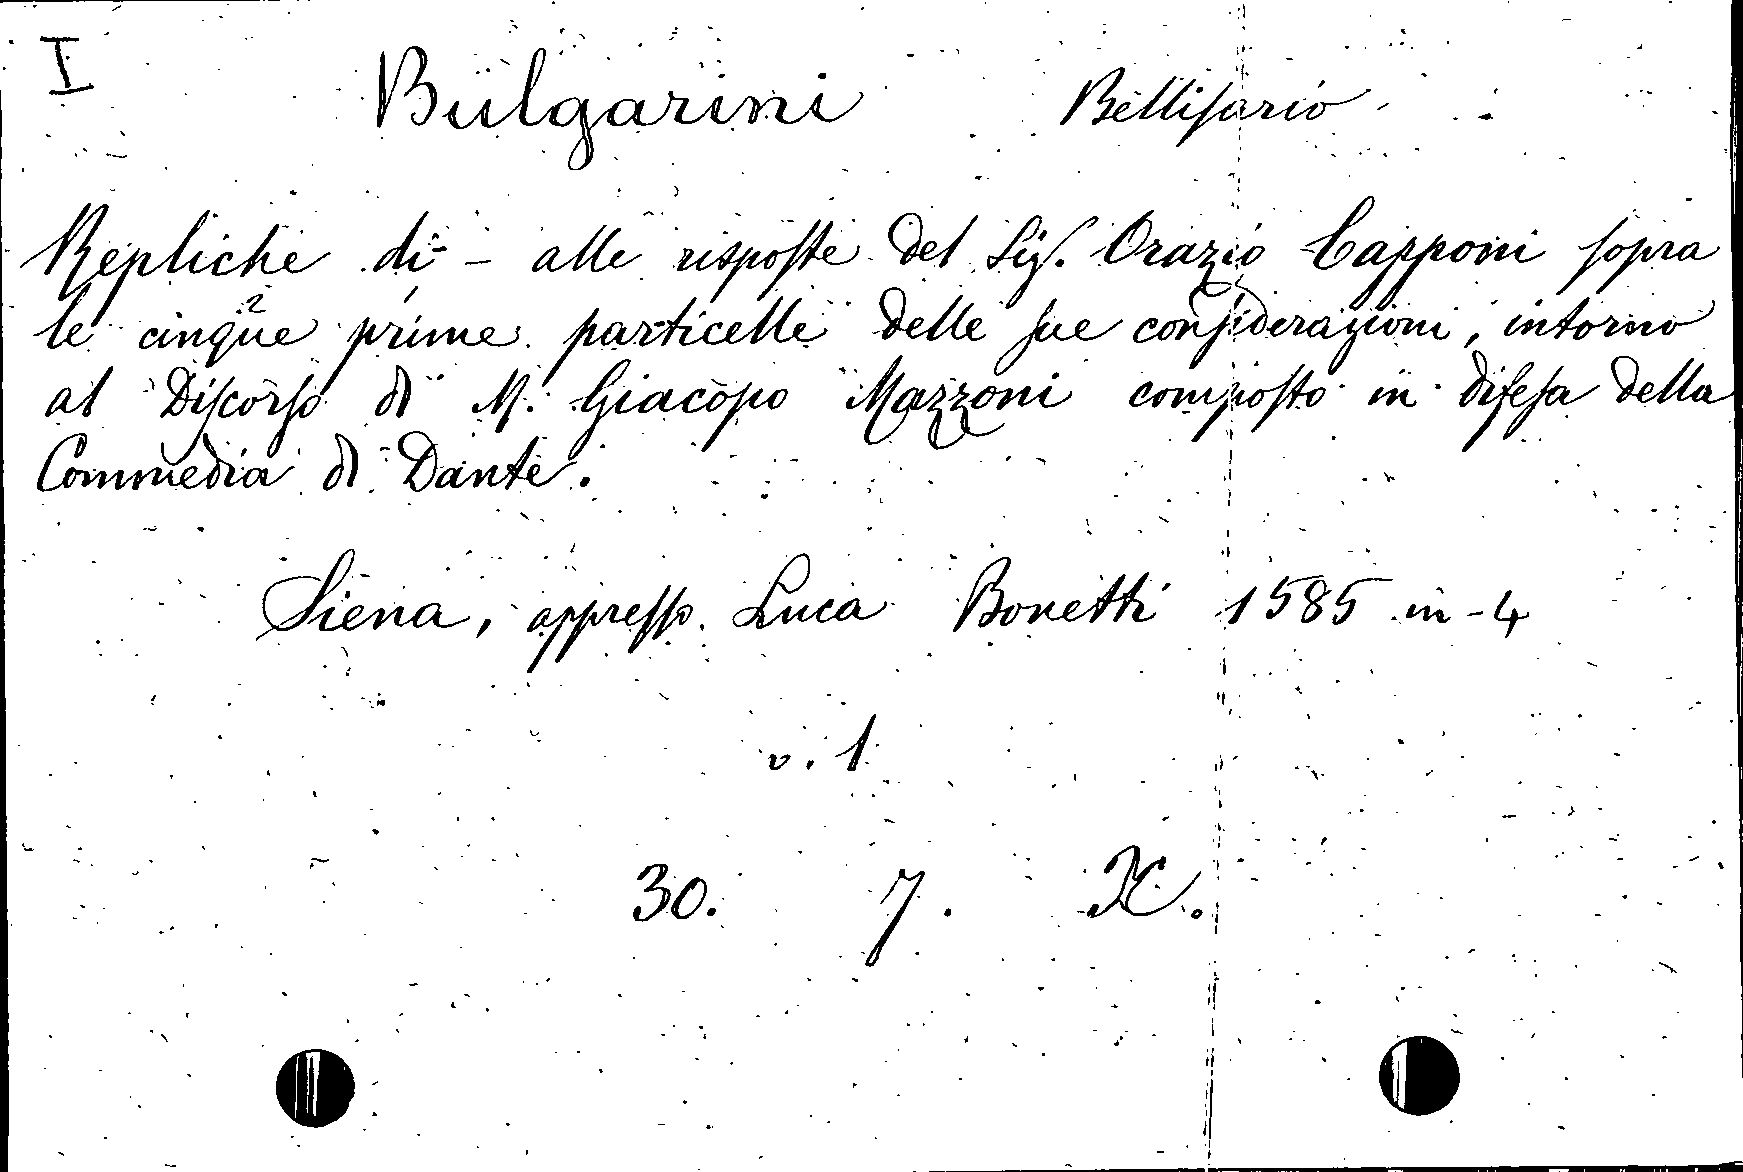 I
Bulgarini Bellisario
Repliche di - alle risposte del Sig. Orazio Capponi sopra
le cinque prime particelle delle sue considerazioni, intorno
al Discorso di M. Giacopo Mazzoni composto in difesa della
Commedia di Dante.
Siena, appresso Luca Bonetti 1585 in-4
v. 1
30. 7. K.